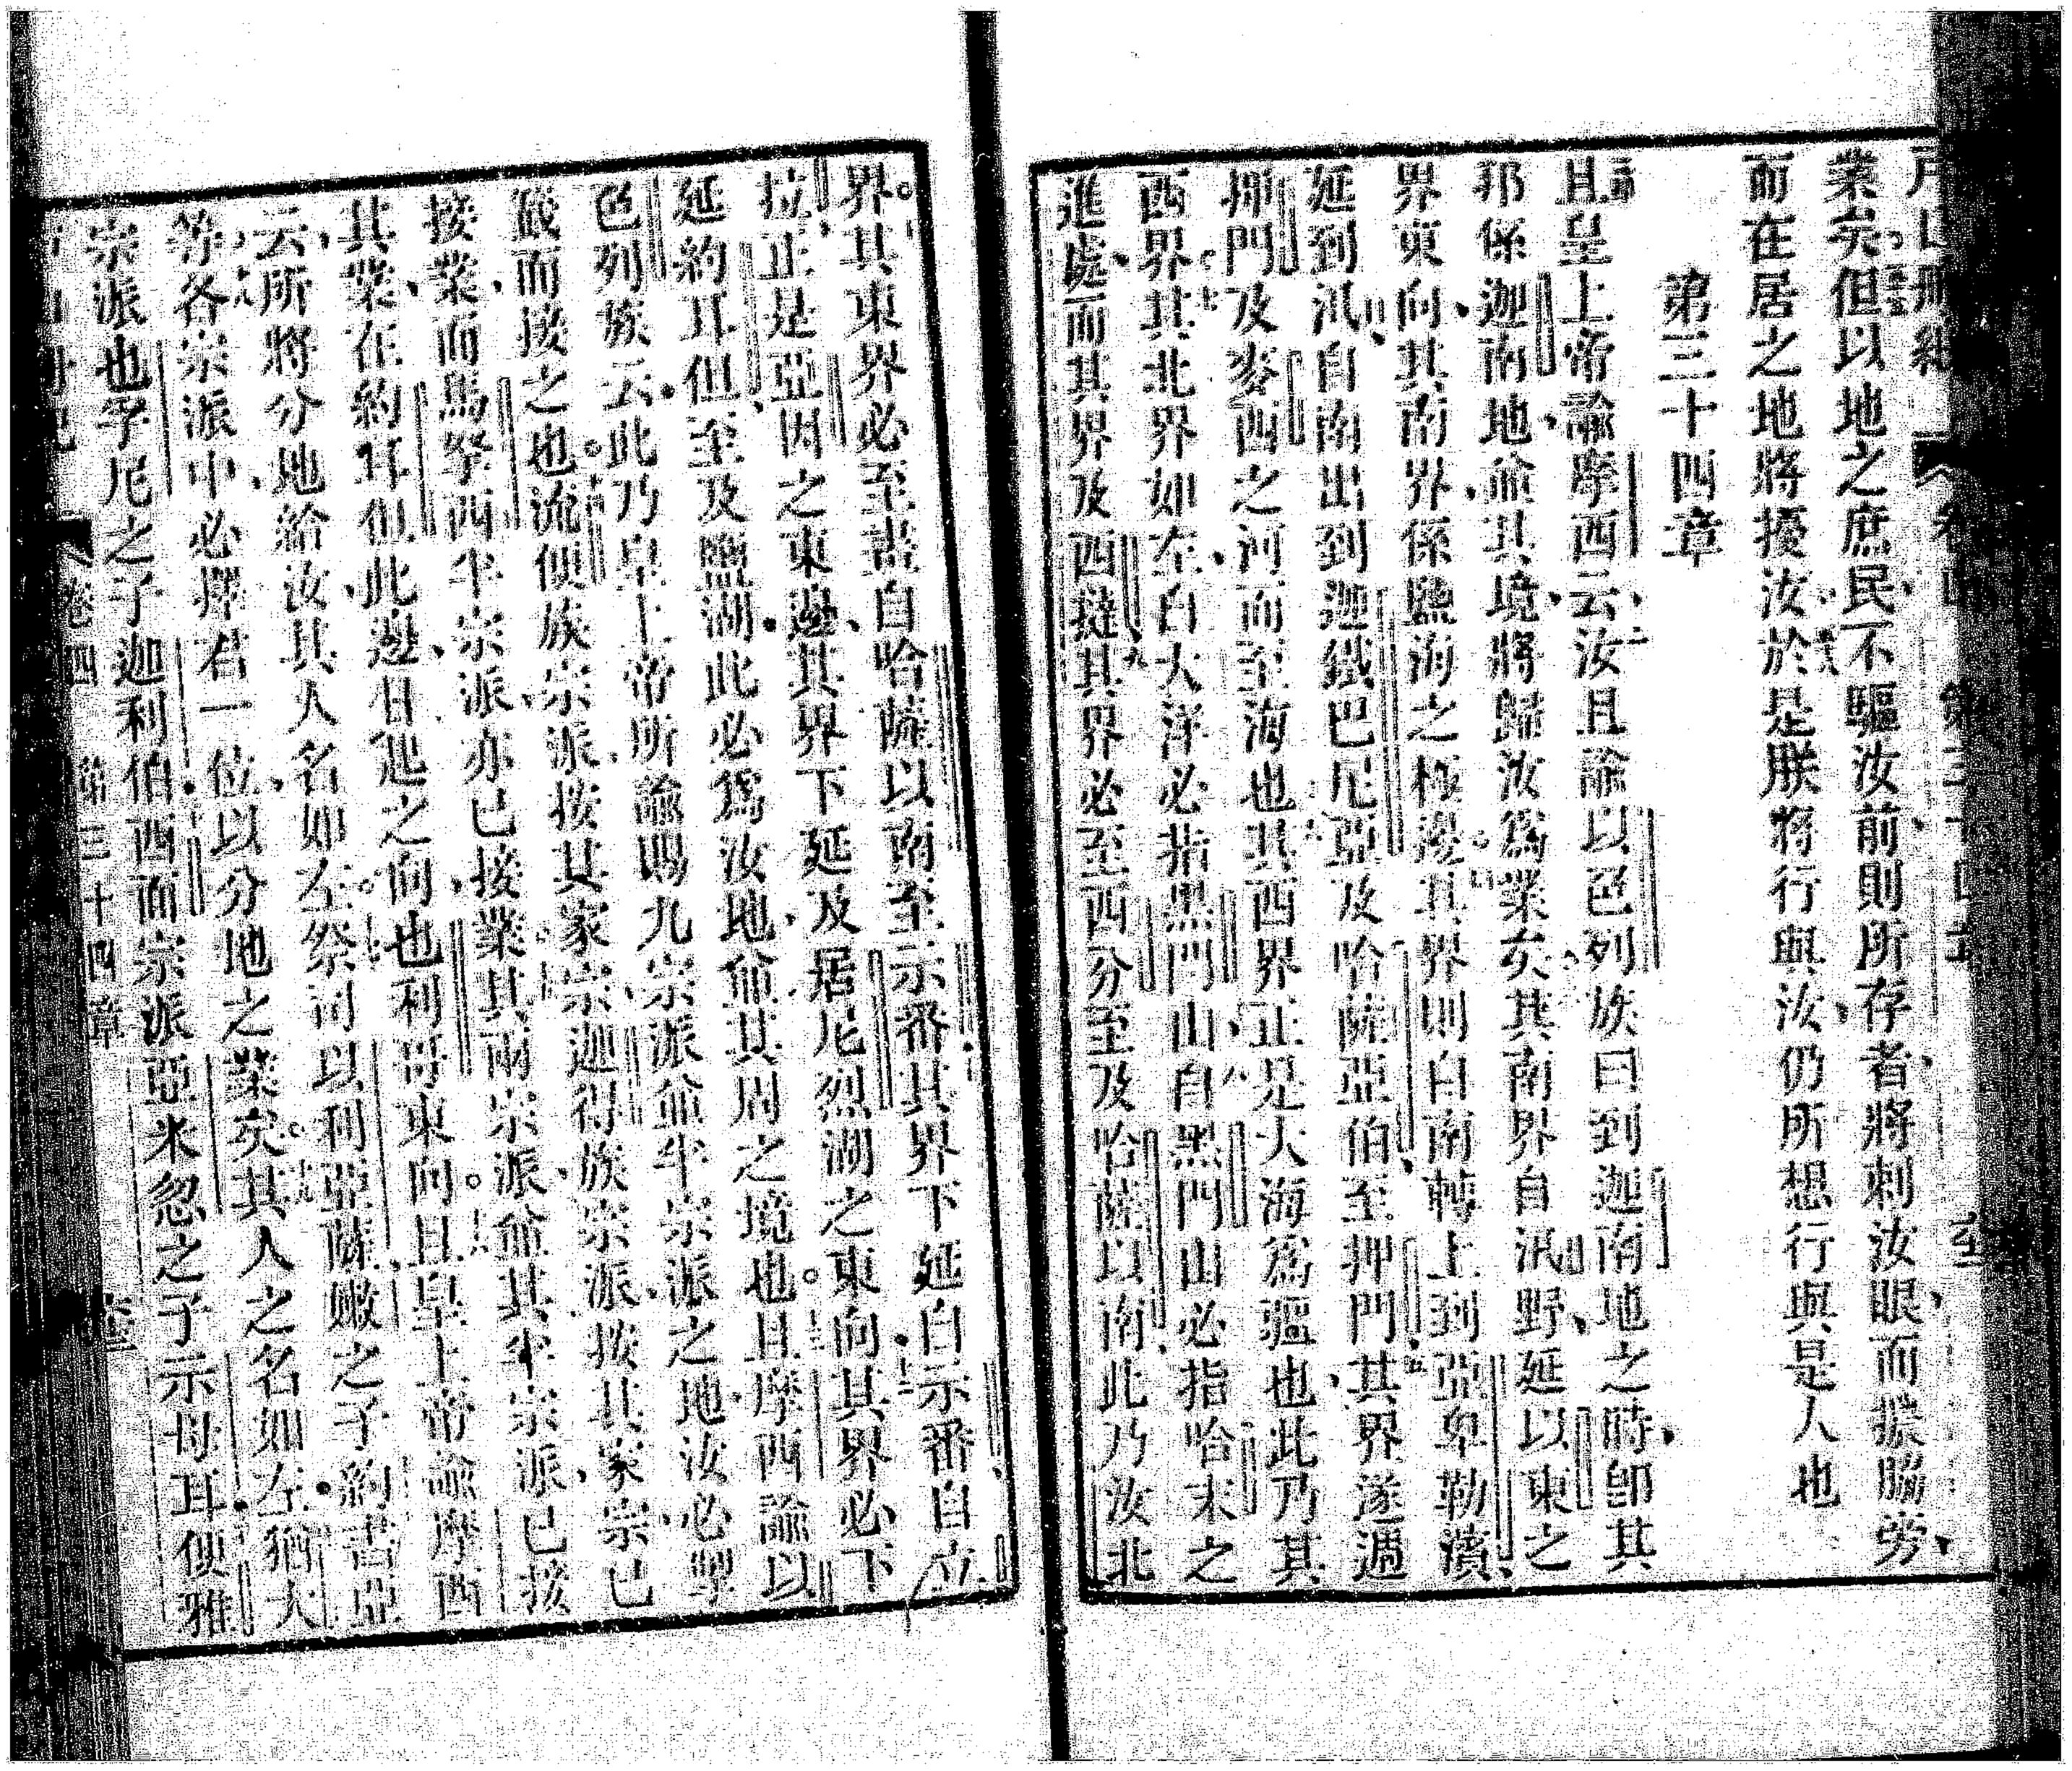 戶口冊紀 卷四 第三十四章
業矣但以地之庶民不驅汝前則所存者將刺汝眼而搌脇旁
而在居之地將擾汝於是朕將行與汝仍所想行與是人也
第三十四章
且皇上帝諭摩西云汝且諭以色列族曰到迦南地之時卽其
邦係迦南地僉其境將歸汝爲業矣其南界自汛野延以東之
界東向其南界係鹽海之極邊其界則自南轉上到亞卑勒濱
延到汛自南出到迦鐵巴尼亞及哈薩亞伯至押門其界遂週
押門及麥西之河而至海也其西界正是大海爲疆也此乃其
西界其北界如左自大洋必指黑門山自黑門山必指哈末之
進處而其界及西撻其界必至西分至及哈薩以南此乃汝北
界其東界必至畫自哈薩以南至示番其界下延自示番自立
拉正是亞因之東邊其界下延及居尼烈湖之東向其界必下
延約耳但至及鹽湖此必爲汝地僉其周之境也且摩西諭以
色列族云此乃皇上帝所諭賜九宗派僉半宗派之地汝必掣
籤而接之也流便族宗派按其家宗迦得族宗派按其家宗已
接業而馬拏西半宗派亦已接業其兩宗派僉其半宗派已接
其業在約耳但此邊日起之向也利哥東向且皇上帝諭摩西
云所將分地給汝其人名如左祭司以利亞薩嫩之子約書亞
等各宗派中必擇君一位以分地之業矣其人之名如左猶大
宗派也孚尼之子迦利伯西面宗派亞米忽之子示母耳便雅
卷四 第三十四章